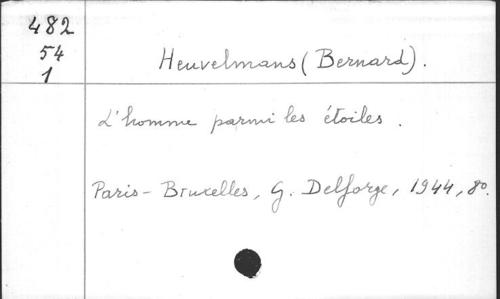 482
54
1
Heuvelmans (Bernard).
L'homme parmi les étoiles.
Paris - Bruxelles, G. Delforge, 1944, 8º.